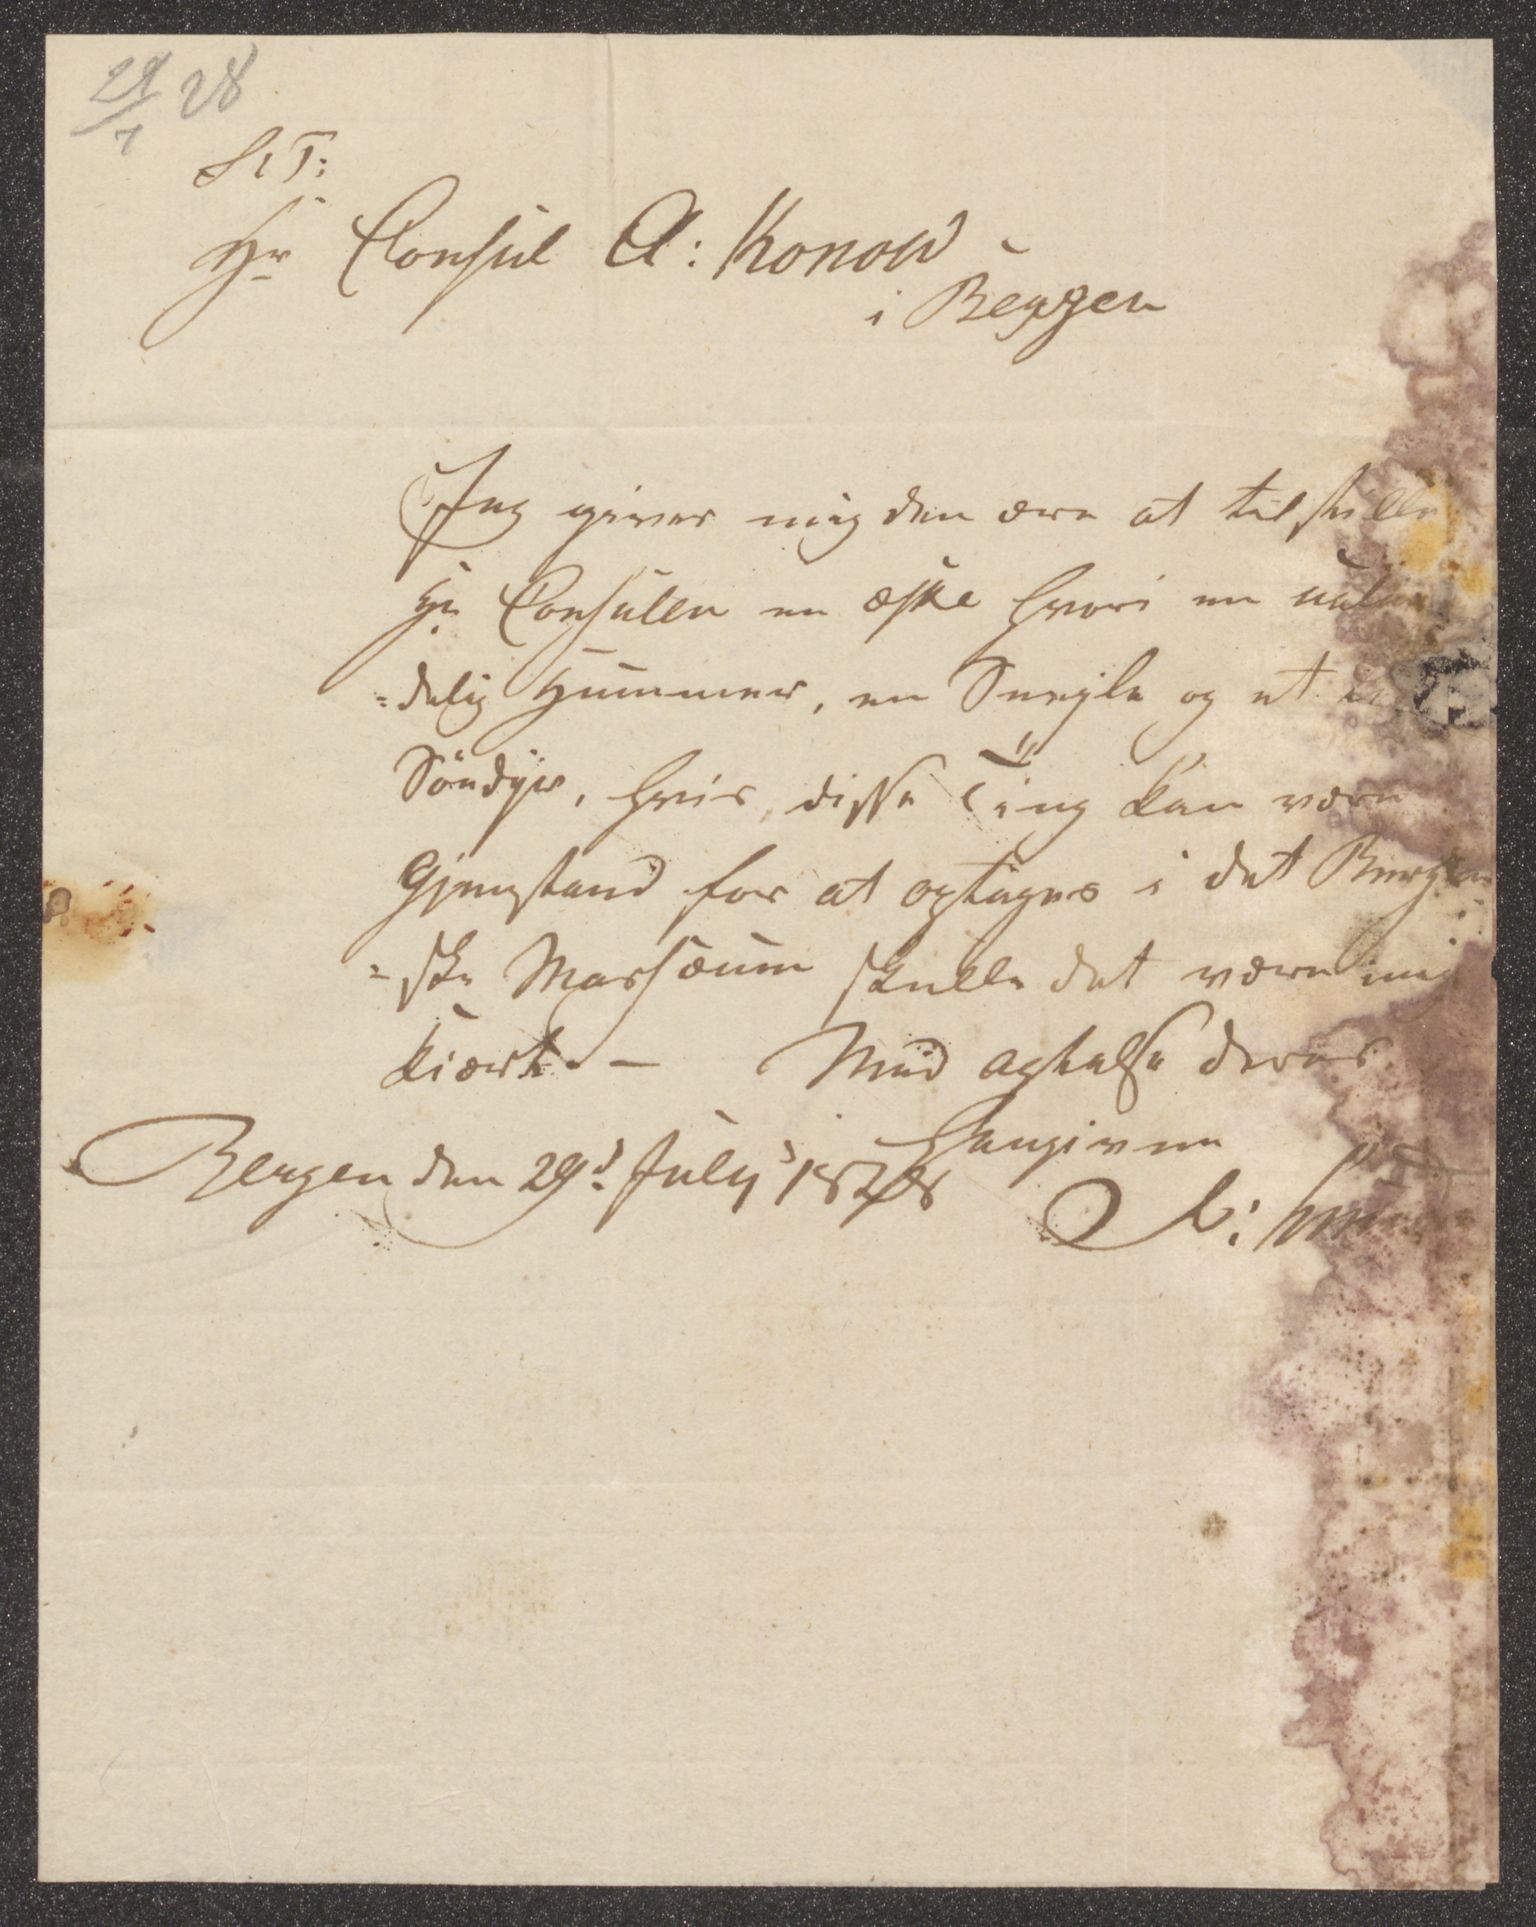 29/7 28
S: T:
Hr Consul A: Konow
i Bergen
Jeg giver mig den ære at tilstille
Hr Consulen en æske hvori en
=delig Hummer, en Snegle og et
Söedyr, hvis disse Ting kan være
Gjenstand for at optages i det Bergen
=ske Massæum skulle det være mig
kiært. — Med agtelse deres
hengivne
Bergen den 29d July 1828